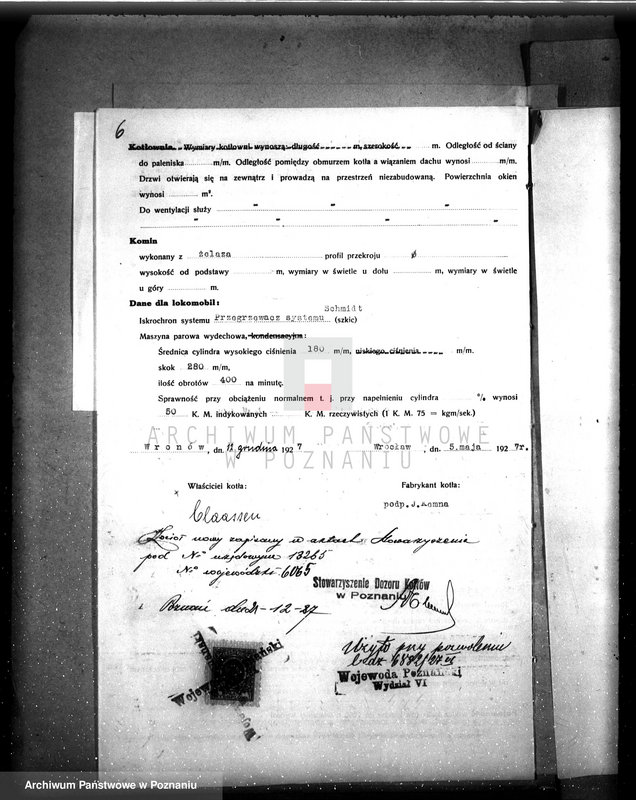 6
Kotłownia Wymiary kotłowni wynoszą: długość m, szerokość m. Odległość od ściany
do paleniska m/m. Odległość pomiędzy obmurzem kotła a wiązaniem dachu wynosi m/m.
Drzwi otwierają się na zewnątrz i prowadzą na przestrzeń niezabudowaną. Powierzchnia okien
wynosi m².
Do wentylacji służy
Komin
wykonany z żelaza profil przekroju ø
wysokość od podstawy m, wymiary w świetle u dołu m, wymiary w świetle
u góry m.
Dane dla lokomobil:
Schmidt
Iskrochron systemu Przegrzewacz systemu (szkic)
Maszyna parowa wydechowa, kondensacyjna:
Średnica cylindra wysokiego ciśnienia 180 m/m, niskiego ciśnienia m/m.
skok 280 m/m,
ilość obrotów 400 na minutę.
Sprawność przy obciążeniu normalnem t. j. przy napełnieniu cylindra % wynosi
50 K. M. indykowanych K. M. rzeczywistych (1 K. M. 75 = kgm/sek.)
ARCHIWUM PAŃSTWOWE
W POZNANIU
Wronów, dn. 11 grudnia 1927 Wrocław, dn. 5.maja 1927r.
Właściciel kotła: Fabrykant kotła:
Claassen podp. J. Kemna
Kocioł nowy zapisany w aktach Stowarzyszenia
pod No urzędowym 13265
No wojewódzki 6065
Stowarzyszenie Dozoru Kotłów
w Poznaniu
Poznań 21-12-27
Użyto przy pozwoleniu
6882/27
Wojewoda Poznański
Wydział VI
Archiwum Państwowe w Poznaniu